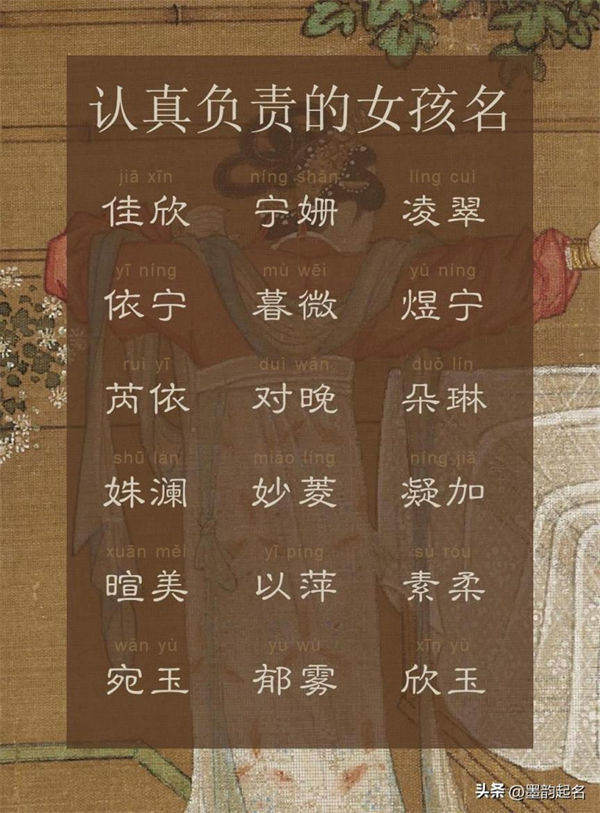 认真负责的女孩名
jiā xīn níng shān líng cuì
佳欣 宁姗 凌翠
yī níng mù wēi yù níng
依宁 暮微 煜宁
ruì yī duì wǎn duǒ lín
芮依 对晚 朵琳
shū lán miào líng níng jiā
姝澜 妙菱 凝加
xuān měi yǐ píng sù róu
暄美 以萍 素柔
wǎn yù yù wù xīn yù
宛玉 郁雾 欣玉
头条 @墨韵起名